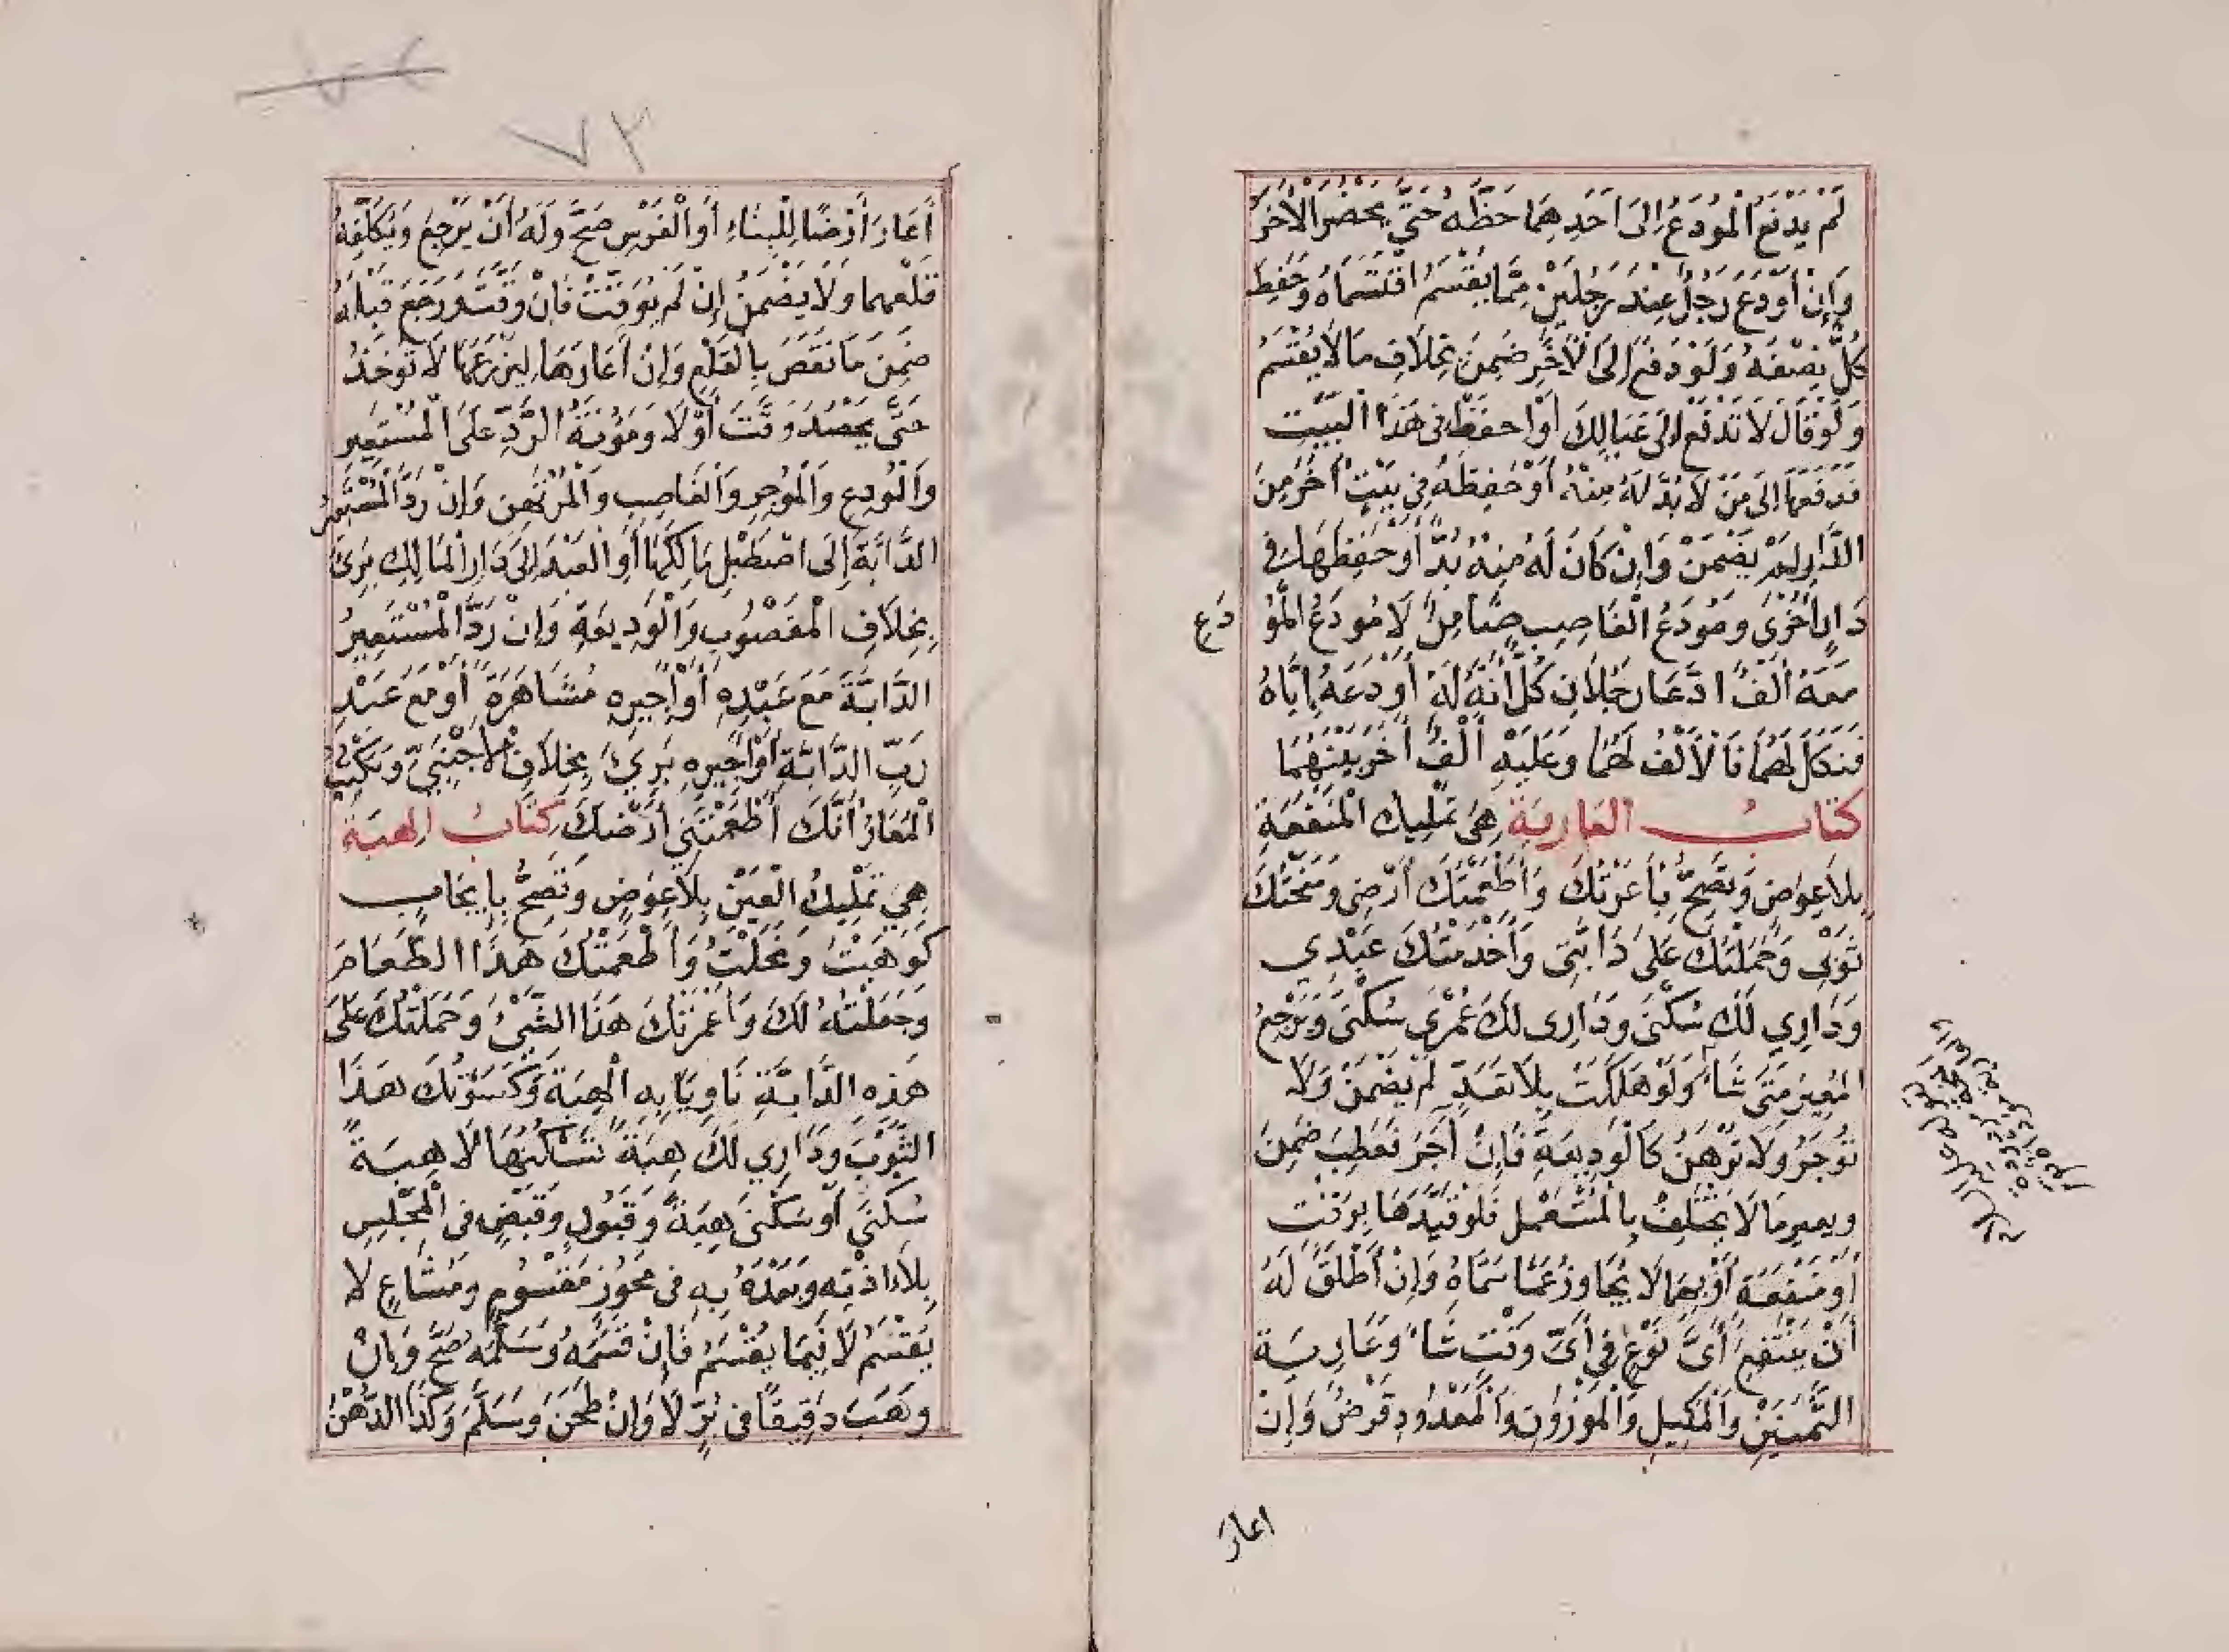 لَمْ يَدْفَعِ الْمُودَعُ اِلَى اَحَدِهِمَا حَظَّهُ حَتَّى يَحْضُرَ الْاٰخَرُ
وَاِنْ أَوْدَعَ رَجُلٌ عِنْدَ رَجُلَيْنِ مِمَّا يُقْسَمُ اقْتَسَمَاهُ وَحَفِظَ
كُلٌّ نِصْفَهُ وَلَوْ دَفَعَ اِلَى الْاٰخَرِ ضَمِنَ بِخِلَافِ مَا لَا يُقْسَمُ
وَلَوْ قَالَ لَا تَدْفَعْ اِلَى عَيَالِكَ اَوْ احْفَظْ فِى هَذَا الْبَيْتِ
فَدَفَعَهَا اِلَى مَنْ لَا بُدَّ لَهُ مِنْهُ أَوْ حَفِظَهُ فِى بَيْتٍ أٰخَرَ مِنَ
الدَّارِ لَمْ يَضْمَنْ وَاِنْ كَانَ لَهُ مِنْهُ بُدٌّ أَوْ حَفِظَهَا فِى
دَارٍ اُخْرَى وَمُودَعُ الْغَاصِبِ ضَامِنٌ لَا مُودَعُ الْمُو
دَعِ
مَعَهُ أَلْفٌ ادَّعَا رَجُلَانِ كُلٌّ أَنَّهُ لَهُ أَوْدَعَهُ اِيَّاهُ
فَنَكَلَ لَهُمَا فَالْأَلْفُ لَهُمَا وَعَلَيْهِ أَلْفٌ أٰخَرُ بَيْنَهُمَا
كتابُ العَارِيَة هِىَ تَمْلِيكُ الْمَنْفَعَةِ
بِلَا عِوَضٍ وَتَصِحُّ بِأَعَرْتُكَ وَأَطْعَمْتُكَ أَرْضِى وَمَنَحْتُكَ
ثَوْبِى وَحَمَلْتُكَ عَلَى دَابَّتِى وَأَخْدَمْتُكَ عَبْدِي
وَدَارِي لَكَ سُكْنَى وَدَارِى لَكَ عُمْرَى سُكْنَى وَيَرْجِعُ
الْمُعِيرُ مَتَى شَاءَ وَلَوْ هَلَكَتْ بِلَا تَعَدٍّ لَمْ يَضْمَنْ وَلَا
تُوجَرُ وَلَا تُرْهَنُ كَالْوَدِيعَةِ فَاِنْ أٰجَرَ فَعَطِبَ ضَمِنَ
ويعير مَا لَا يَخْتَلِفُ بِالْمُسْتَعْمِل فَلَوْ قَيَّدَهَا بِوَقْتٍ
أَوْ مَنْفَعَةٍ أَوْ بِهِمَا لَا يُجَاوِزُ عَمَّا سَمَّاهُ وَاِنْ أَطْلَقَ لَهُ
أَنْ يَنْتَفِعَ أَىَّ نَوْعٍ فِى أَىِّ وَقْتٍ شَاءَ وَعَارِيَة
الثَّمَنَيْنِ وَالْمَكِيلِ وَالْمَوْزُونِ وَالْمَعْدُودِ قَرْضٌ وَاِنْ
اعارَ
٧٢
أَعَارَ أَرْضًا لِلْبِنَاءِ أَوِ الْغَرْسِ صَحَّ وَلَهُ أَنْ يَرْجِعَ وَيُكَلِّفَهُ
قَلْعَهما وَلَا يَضْمَنُ إِنْ لَمْ يُوَقِّتْ فَاِنْ وَقَّتَ وَرَجَعَ قَبْلَهُ
ضَمِنَ مَا نَقَصَ بِالْقَلْعِ وَاِنْ أَعَارَهَا لِيَزْرَعَهَا لَا تُوخَذُ
حَتَّى يَحْصُدَ وَقَّتَ أَوْ لَا وَمَؤُنَةُ الرَّدِّ عَلَى الْمُسْتَعِيرِ
وَالْمُودِعِ وَالْمُوجِرِ وَالْغَاصِبِ وَالْمُرْتَهِنِ وَاِنْ رَدَّ الْمُسْتَعِيرُ
الدَّابَّةَ إِلَى اصْطَبْلِ مَالِكِهَا أَوِ الْعَبْدَ اِلَى دَارِ الْمَالِكِ بَرِئَ
بِخِلَافِ الْمَغْصُوبِ وَالْوَدِيعَةِ وَاِنْ رَدَّ الْمُسْتَعِيرُ
الدَّابَّةَ مَعَ عَبْدِهِ أَوْ أَجِيرِهِ مُشَاهَرَةً أَوْ مَعَ عَبْدِ
رَبِّ الدَّابَّةِ أَوْ أَجِيرِهِ بَرِئَ بِخِلَافِ الْأَجْنَبِيِّ وَيَكْتُبُ
الْمُعَارُ أَنَّكَ أَطْعَمْتَنِي أَرْضَكَ كِتَابُ الهِبَة
هِيَ تَمْلِيكُ الْعَيْنِ بِلَا عِوَضٍ وَتَصِحُّ بِإِيجَابٍ
كَوَهَبْتُ وَنَحَلْتُ وَأَطْعَمْتُكَ هَذَا الطَّعَامَ
وَجَعَلْتُهُ لَكَ وَأَعْمَرْتُكَ هَذَا الشَّيْءَ وَحَمَلْتُكَ عَلَى
هَذِهِ الدَّابَّةِ نَاوِيًا بِهِ الْهِبَةَ وَكَسَوْتُكَ هَذَا
الثَّوْبَ وَدَارِي لَكَ هِبَةً تَسْكُنُهَا لَا هِبَةً
سُكْنَى أَوْ سُكْنَى هِبَةً وَقَبُولٍ وَقَبْضٍ فِى الْمَجْلِسِ
بِلَا اذْنِهِ وَبَعْدَهُ بِهِ فِى مَحُوزٍ مَقْسُومٍ وَمُشَاعٍ لَا
يُقْسَمُ لَا فِيمَا يُقْسَمُ فَاِنْ قَسَمَهُ وَسَلَّمَهُ صَحَّ وَاِنْ
وَهَبَ دَقِيقًا فِى بُرٍّ لَا وَاِنْ طَحَنَ وَسَلَّمَ وَكَذَا الدُّهْنُ